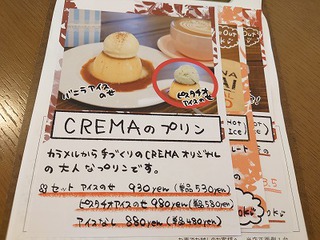 バニラアイスのせ
ピスタチオアイスのせ
CREMAのプリン
カラメルから手づくりのCREMAオリジナルの
大人なプリンです。
セット アイスのせ 930yen (単品530yen)
ピスタチオアイスのせ 980yen (単品580yen)
アイスなし 880yen (単品480yen)